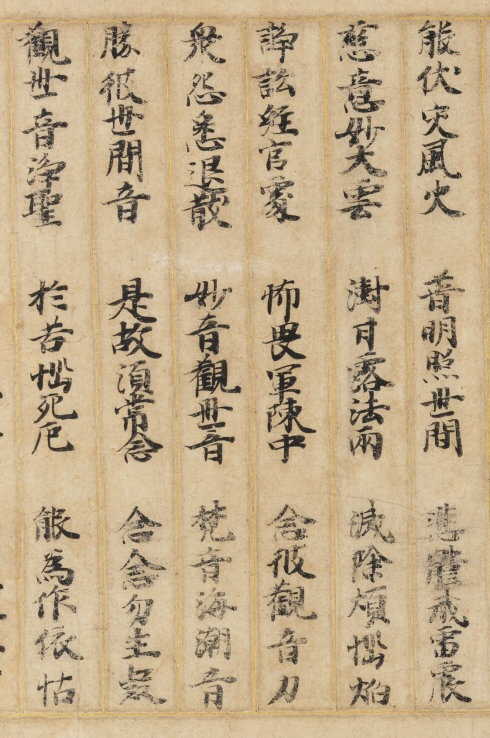 能伏灾風火 普明照世間 悲體戒雷震
慈意妙大雲 澍甘露法雨 滅除煩惱焰
諍訟經官處 怖畏軍陳中 念彼觀音力
衆怨悉退散 妙音觀世音 梵音海潮音
勝彼世間音 是故須常念 念念勿生疑
觀世音淨聖 於苦惱死厄 能為作依怙